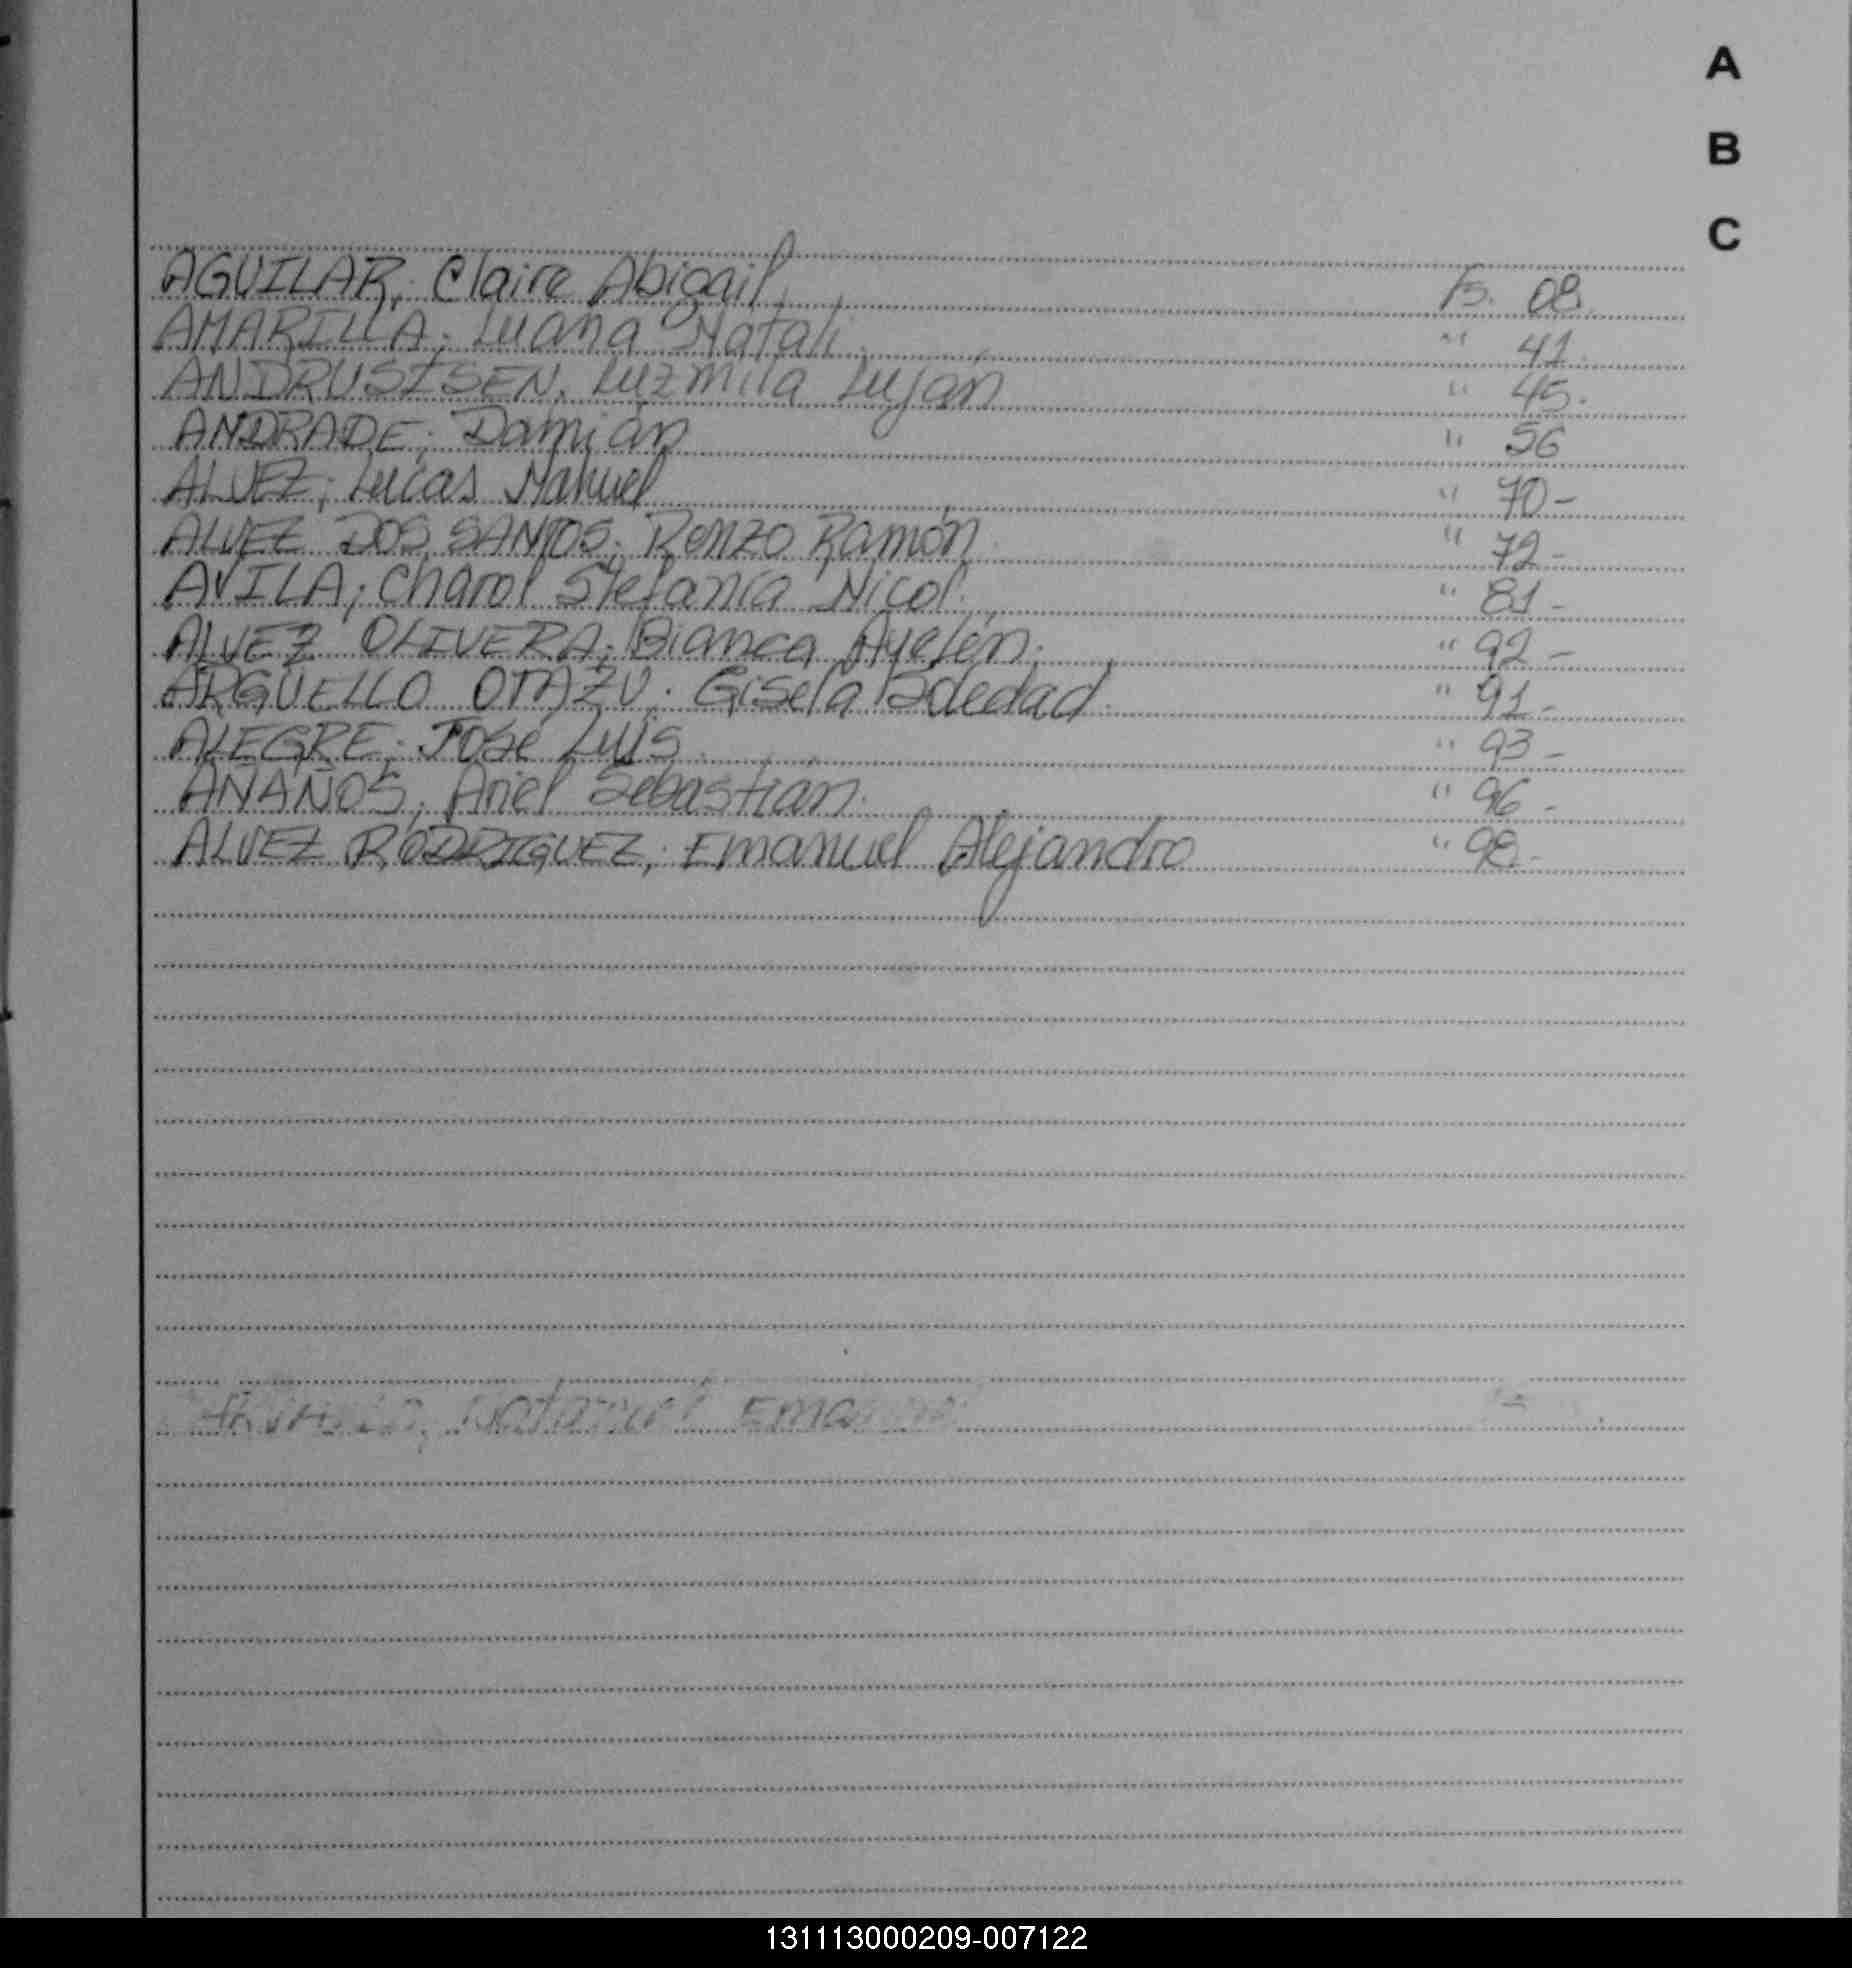 A
B
C
AGUILAR; Claire Abigail. Fs. 08.
AMARILLA; Luana Natali. " 41.
ANDRUSISEN, Luzmila Luján " 45.
ANDRADE; Damián " 56
ALVEZ; Lucas Nahuel " 70-
ALVEZ DOS SANTOS; Renzo Ramón. " 72-
AVILA; Charol Stefanía Nicol. " 81-
ALVEZ OLIVERA; Bianca Ayelén. " 92-
ARGÜELLO OTAZU; Gisela Soledad. " 91-
ALEGRE; José Luis. " 93-
AÑAÑOS; Ariel Sebastián. " 96-
ALVEZ RODRIGUEZ; Emanuel Alejandro " 98-
131113000209-007122